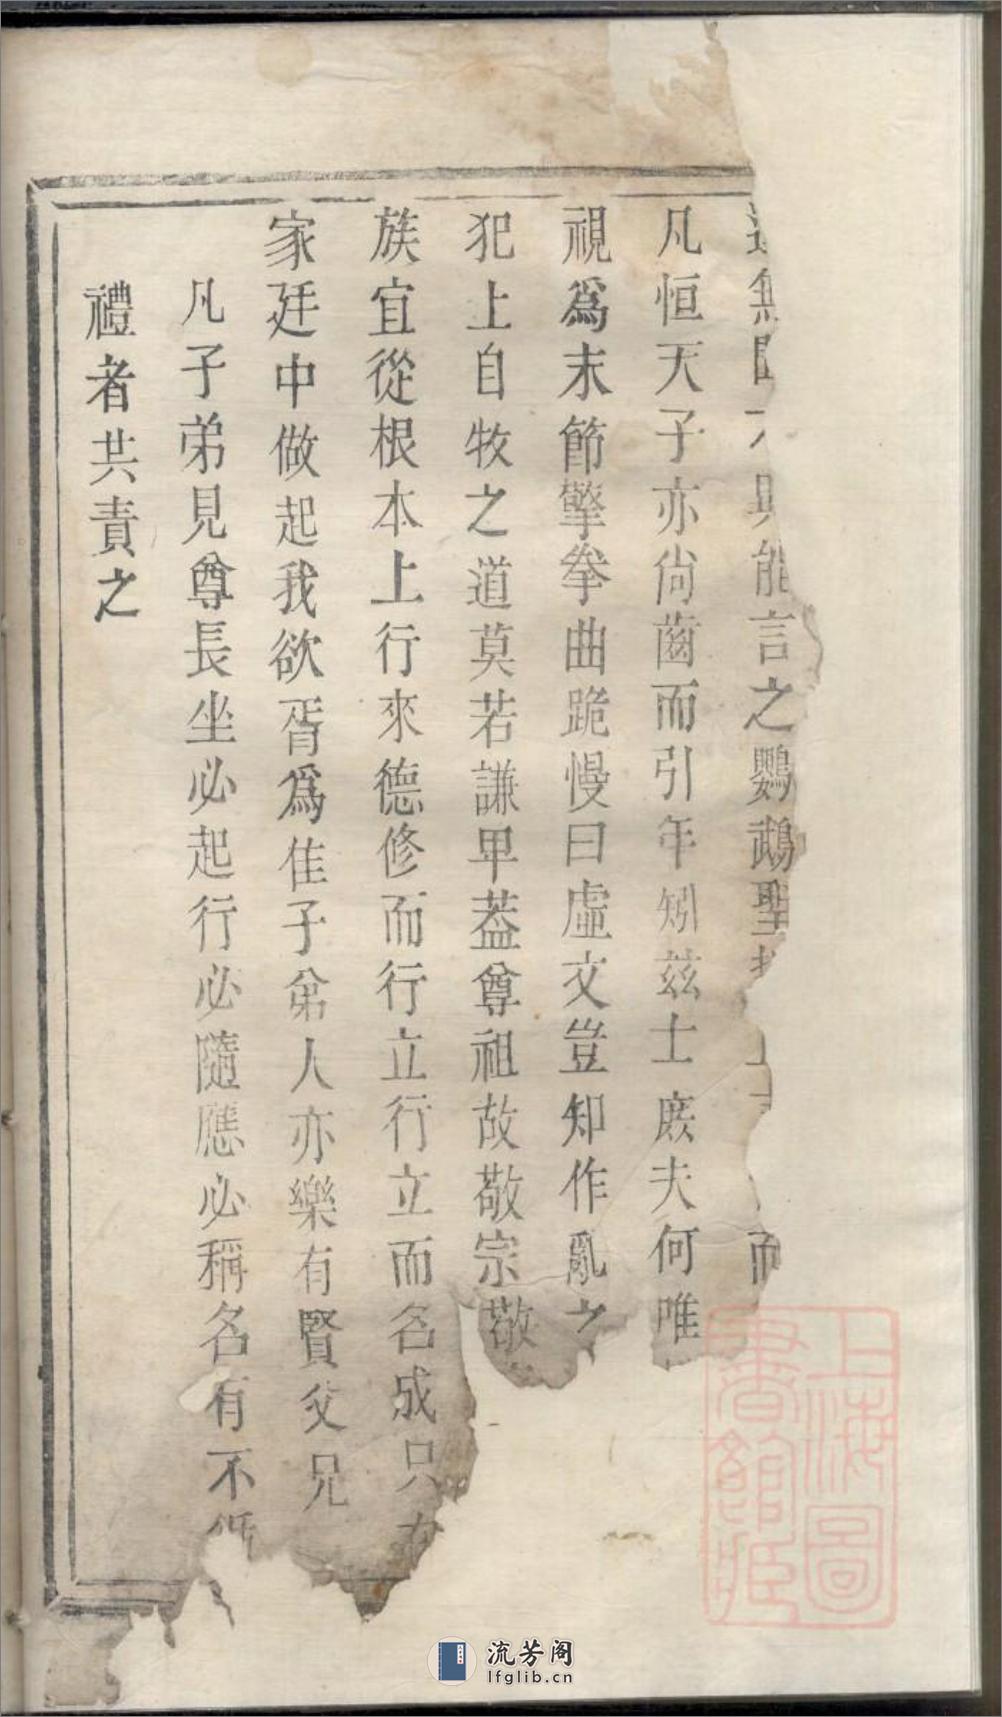 無能言之鸚鵡聖而
凡恒天子亦尙齒而引年矧茲士庶夫何唯
視爲末節擎拳曲跪慢曰虛文豈知作亂之
犯上自牧之道莫若謙卑葢尊祖故敬宗敬
族宜從根本上行來德修而行立行立而名成只在
家廷中做起我欲胥爲佳子弟人亦樂有賢父兄
凡子弟見尊長坐必起行必隨應必稱名有不
禮者共責之
上海圖
書館藏
流芳阁
lfglib.cn